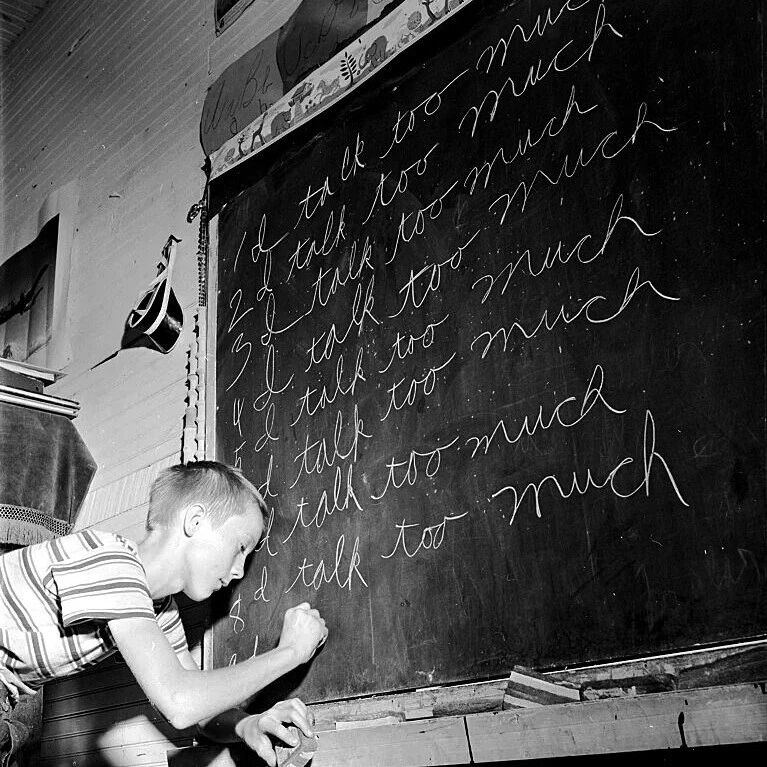 Bb
1 I talk too muc
2 I talk too much
3 I talk too much
4 I talk too much
5 I talk too much
I talk too much
I talk too much
8 I talk too much